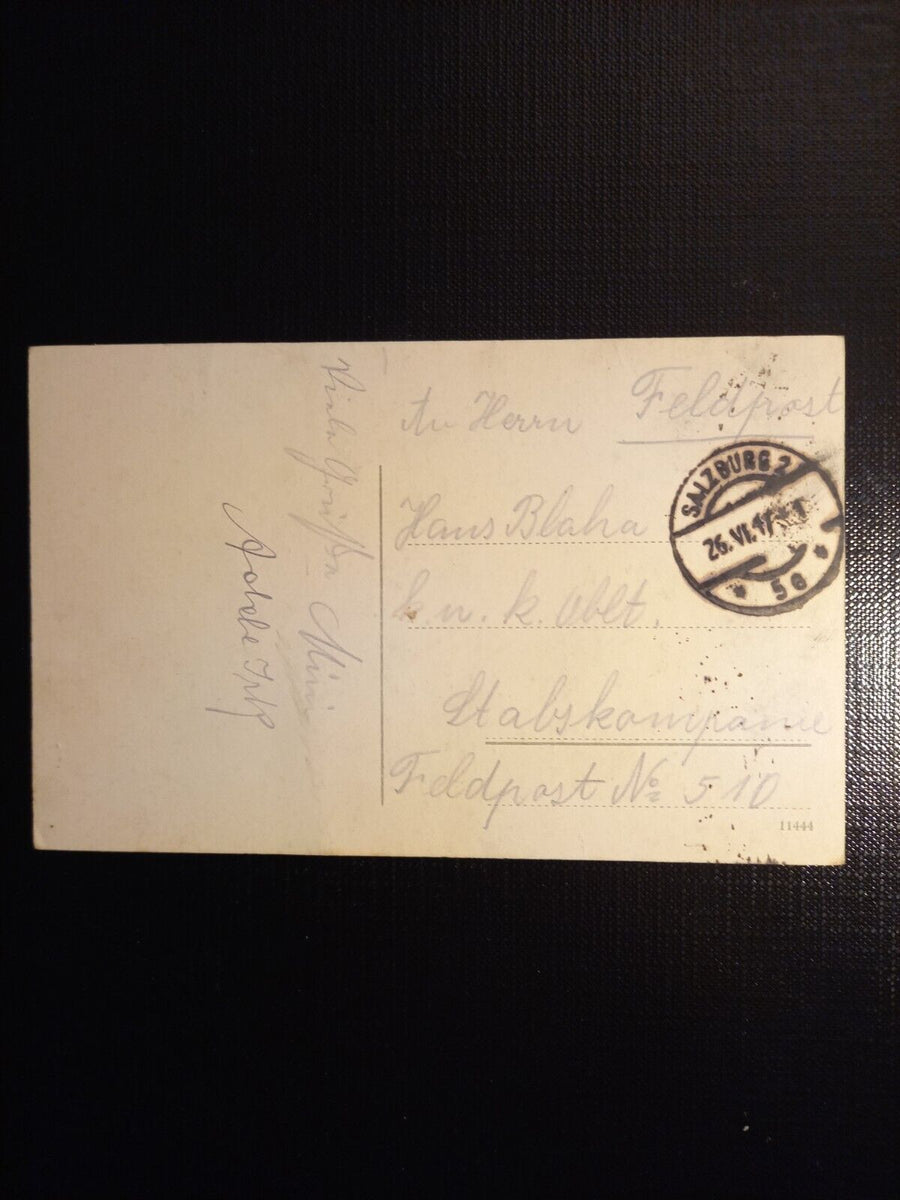 Feldpost
An Herrn
Hans Blaha
k. u. k. Oblt.
Stabskompanie
Feldpost № 510
SALZBURG 2
26. VI. 17
5a
11444
Viele Grüße